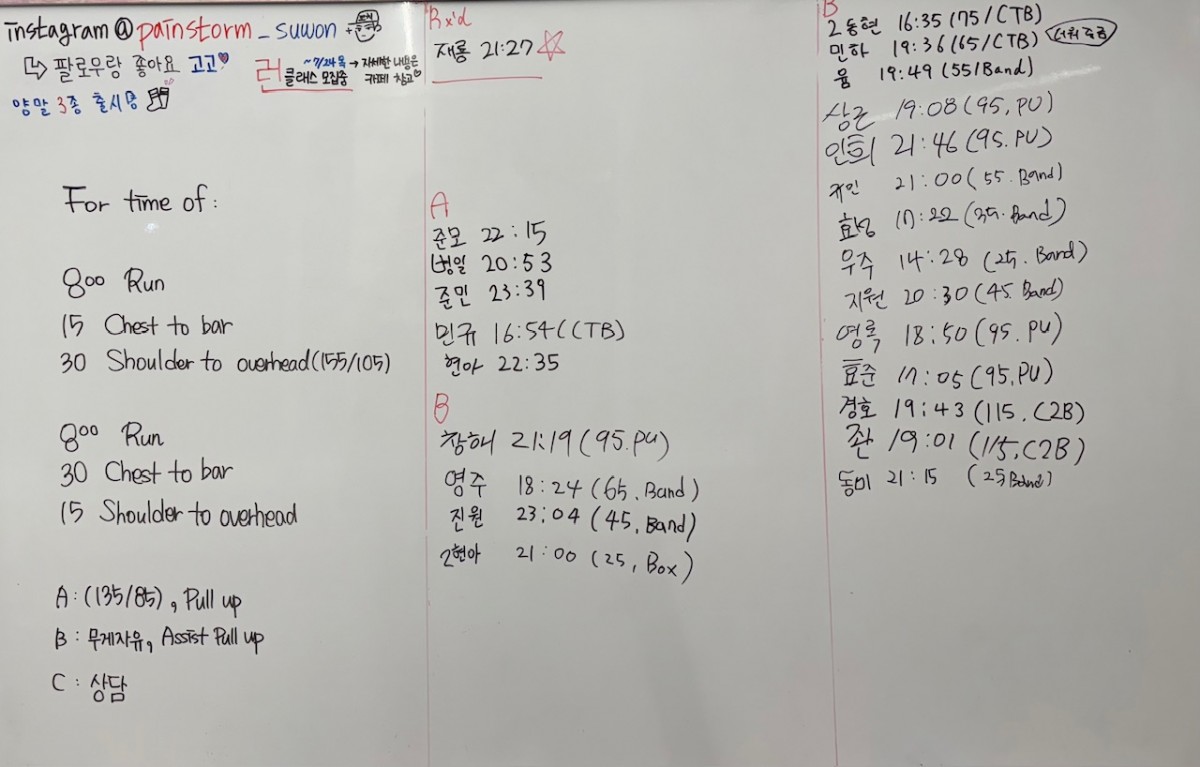 instagram@painstorm_suwon
팔로우랑 좋아요 고고
런 클래스 모집중
~7/24 목 → 자세한 내용은 카페 참고
양말 3종 출시
For time of:
800 Run
15 Chest to bar
30 Shoulder to overhead(155/105)
800 Run
30 Chest to bar
15 Shoulder to overhead
A: (135/85), Pull up
B: 무게자유, Assist Pull up
C: 상담
Rx'd
재룡 21:27
A
준모 22:15
병일 20:53
준민 23:39
민규 16:54(CTB)
현아 22:35
B
창해 21:19 (95.PU)
영주 18:24 (65.Band)
진원 23:04 (45, Band)
2현아 21:00 (25, Box)
B
2동현 16:35 (75/CTB)
민하 19:36 (65/CTB)
윰 19:49 (55/Band)
상근 19:08 (95, PU)
인희 21:46 (95.PU)
귀인 21:00 (55.Band)
효성 17:22 (35.Band)
우주 14:28 (25.Band)
지원 20:30 (45.Band)
영록 18:50 (95.PU)
효준 17:05 (95,PU)
경호 19:43 (115.C2B)
좐 19:01 (115,C2B)
동미 21:15 (25 Band)